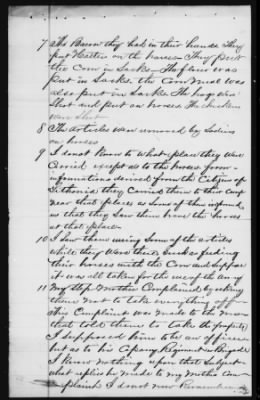 7 The Bacon they had in their hands They
put Halters on the horses They put
the Corn in Sacks. The flour was
put in Sacks. the Corn meal was
also put in Sacks The hogs were
Shot and put on horses The chickens
were Shot
8 The articles were removed by Soldiers
on horses
9 I do not know to what place they were
Carried except as to the horses from
information derived from the Citizens of
Lithonia they Carried them to their camp
near that place as some of them informed
us that they saw them have the horses
at that place
10 I saw them using Some of the articles
while they were there Such as feeding
their horses with the Corn and suppose
it was all taken for the use of the army
11 My Step Mother Complained by asking
them not to take everything off
This Complaint was made to the man
that told them to take the property
I supposed him to be an officer
but as to his Company Regiment or Brigade
I know nothing upon that Subject
what replies he made to my Mothers Com-
plaints I do not now Remember